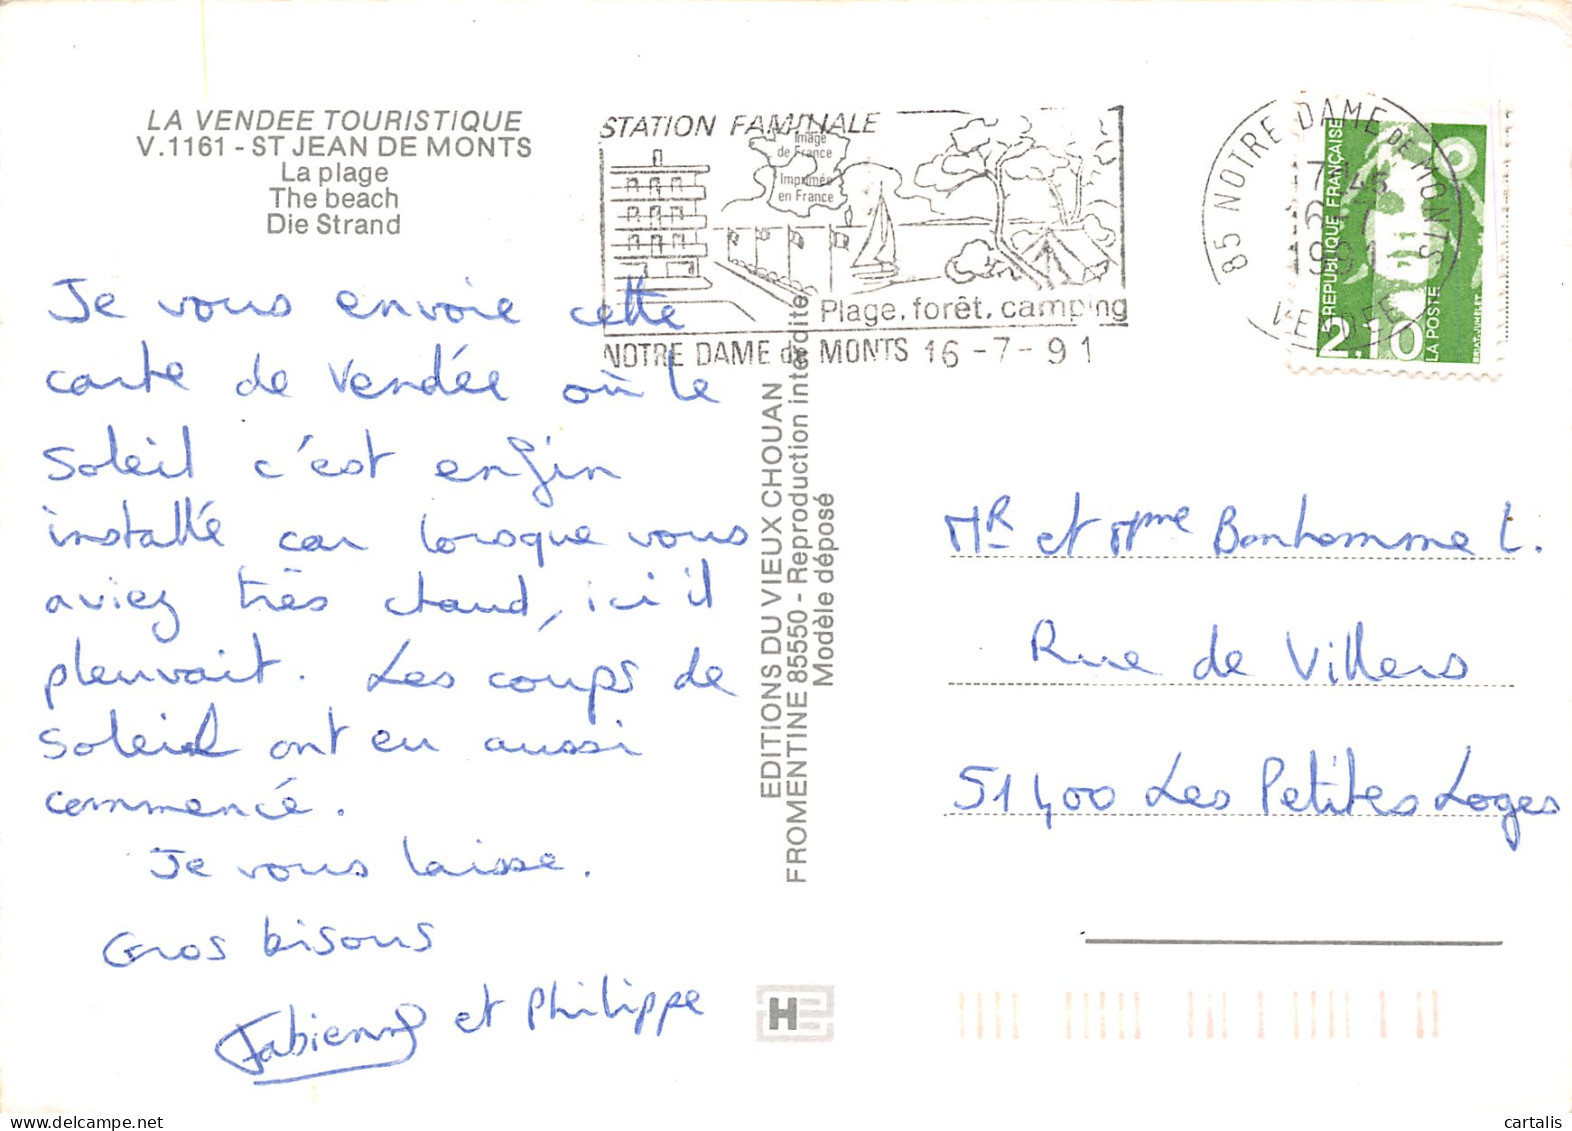 LA VENDEE TOURISTIQUE
V.1161 - ST JEAN DE MONTS
La plage
The beach
Die Strand
Je vous envoie cette
carte de Vendée où le
Soleil c'est enfin
installé car lorsque vous
aviez très chaud, ici il
pleuvait. Les coups de
soleil ont eu aussi
commencé.
Je vous laisse.
Gros bisous
Fabienne et Philippe
STATION FAMILIALE
Image
de France
Imprimée
en France
Plage, forêt, camping
NOTRE DAME de MONTS 16-7-91
EDITIONS DU VIEUX CHOUAN
FROMENTINE 85550 - Reproduction interdite
Modèle déposé
85 NOTRE DAME DE MONTS
1991
VENDEE
REPUBLIQUE FRANÇAISE
2,10
LA POSTE
Mr et Mme Bonhomme L.
Rue de Villers
51400 Les Petites Loges
H
delcampe.net
cartalis